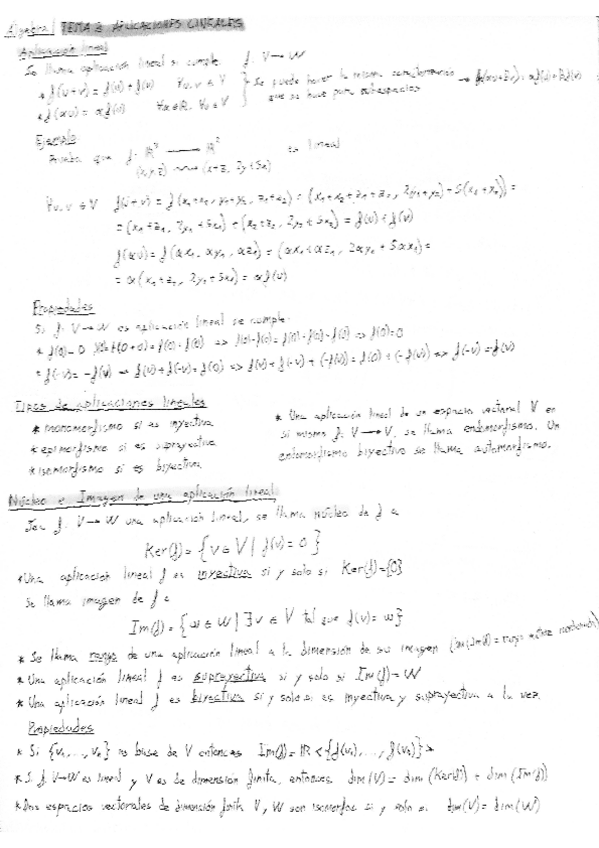 Álgebra TEMA 3 APLICACIONES LINEALES
Aplicación lineal
Se llama aplicación lineal si cumple f: V → W
* f(u+v) = f(u) + f(v) ∀u, v ∈ V } Se puede hacer la misma caracterización → f(αu+βv) = αf(u) + βf(v)
* f(αu) = αf(u) ∀α∈R, ∀u ∈ V que se hace para subespacios
Ejemplo
Prueba que f: R³ → R² es lineal
(x,y,z) ⟿ (x+z, 2y+5x)
∀u, v ∈ V f(u+v) = f(x₁+x₂, y₁+y₂, z₁+z₂) = (x₁+x₂+z₁+z₂, 2(y₁+y₂) + 5(x₁+x₂)) =
= (x₁+z₁, 2y₁+5x₁) + (x₂+z₂, 2y₂+5x₂) = f(u) + f(v)
f(αu) = f(αx₁, αy₁, αz₁) = (αx₁+αz₁, 2αy₁ + 5αx₁) =
= α(x₁+z₁, 2y₁+5x₁) = αf(u)
Propiedades
Si f: V → W es aplicación lineal se cumple:
* f(0) = 0 f(0) = f(0+0) = f(0) + f(0) => f(0) - f(0) = f(0) + f(0) - f(0) => f(0) = 0
* f(-v) = -f(v) → f(v) + f(-v) = f(0) => f(v) + f(-v) + (-f(v)) = f(0) + (-f(v)) => f(-v) = -f(v)
Tipos de aplicaciones lineales
* monomorfismo si es inyectiva
* epimorfismo si es suprayectiva
* isomorfismo si es biyectiva
* Una aplicación lineal de un espacio vectorial V en
si mismo f: V → V, se llama endomorfismo. Un
endomorfismo biyectivo se llama automorfismo.
Núcleo e Imagen de una aplicación lineal
Sea f: V → W una aplicación lineal, se llama núcleo de f a
Ker(f) = {v ∈ V | f(v) = 0}
* Una aplicación lineal f es inyectiva si y solo si Ker(f) = {0}
Se llama imagen de f a
Im(f) = {w ∈ W | ∃v ∈ V tal que f(v) = w}
* Se llama rango de una aplicación lineal a la dimensión de su imagen
* Una aplicación lineal f es suprayectiva si y solo si Im(f) = W
* Una aplicación lineal f es biyectiva si y solo si es inyectiva y suprayectiva a la vez.
Propiedades
* Si {v₁, ..., vₙ} es base de V entonces Im(f) = R<{f(v₁), ..., f(vₙ)}>
* Si f: V→W es lineal y V es de dimensión finita, entonces dim(V) = dim(Ker(f)) + dim(Im(f))
* Dos espacios vectoriales de dimensión finita V, W son isomorfos si y solo si dim(V) = dim(W)